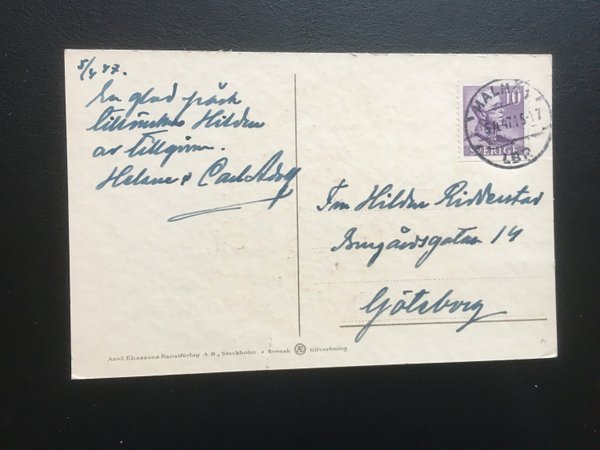 5/4 47.
En glad påsk
tillönskas Hilda
av tillgivna.
Helene & Carl Adolf
MALMÖ 1
5.4.47.15-17
LBR
10
SVERIGE
Fru Hilda Ridderstad
Burgårdsgatan 14
Göteborg
Axel Eliassons Konstförlag A.B., Stockholm • Svensk Æ tillverkning